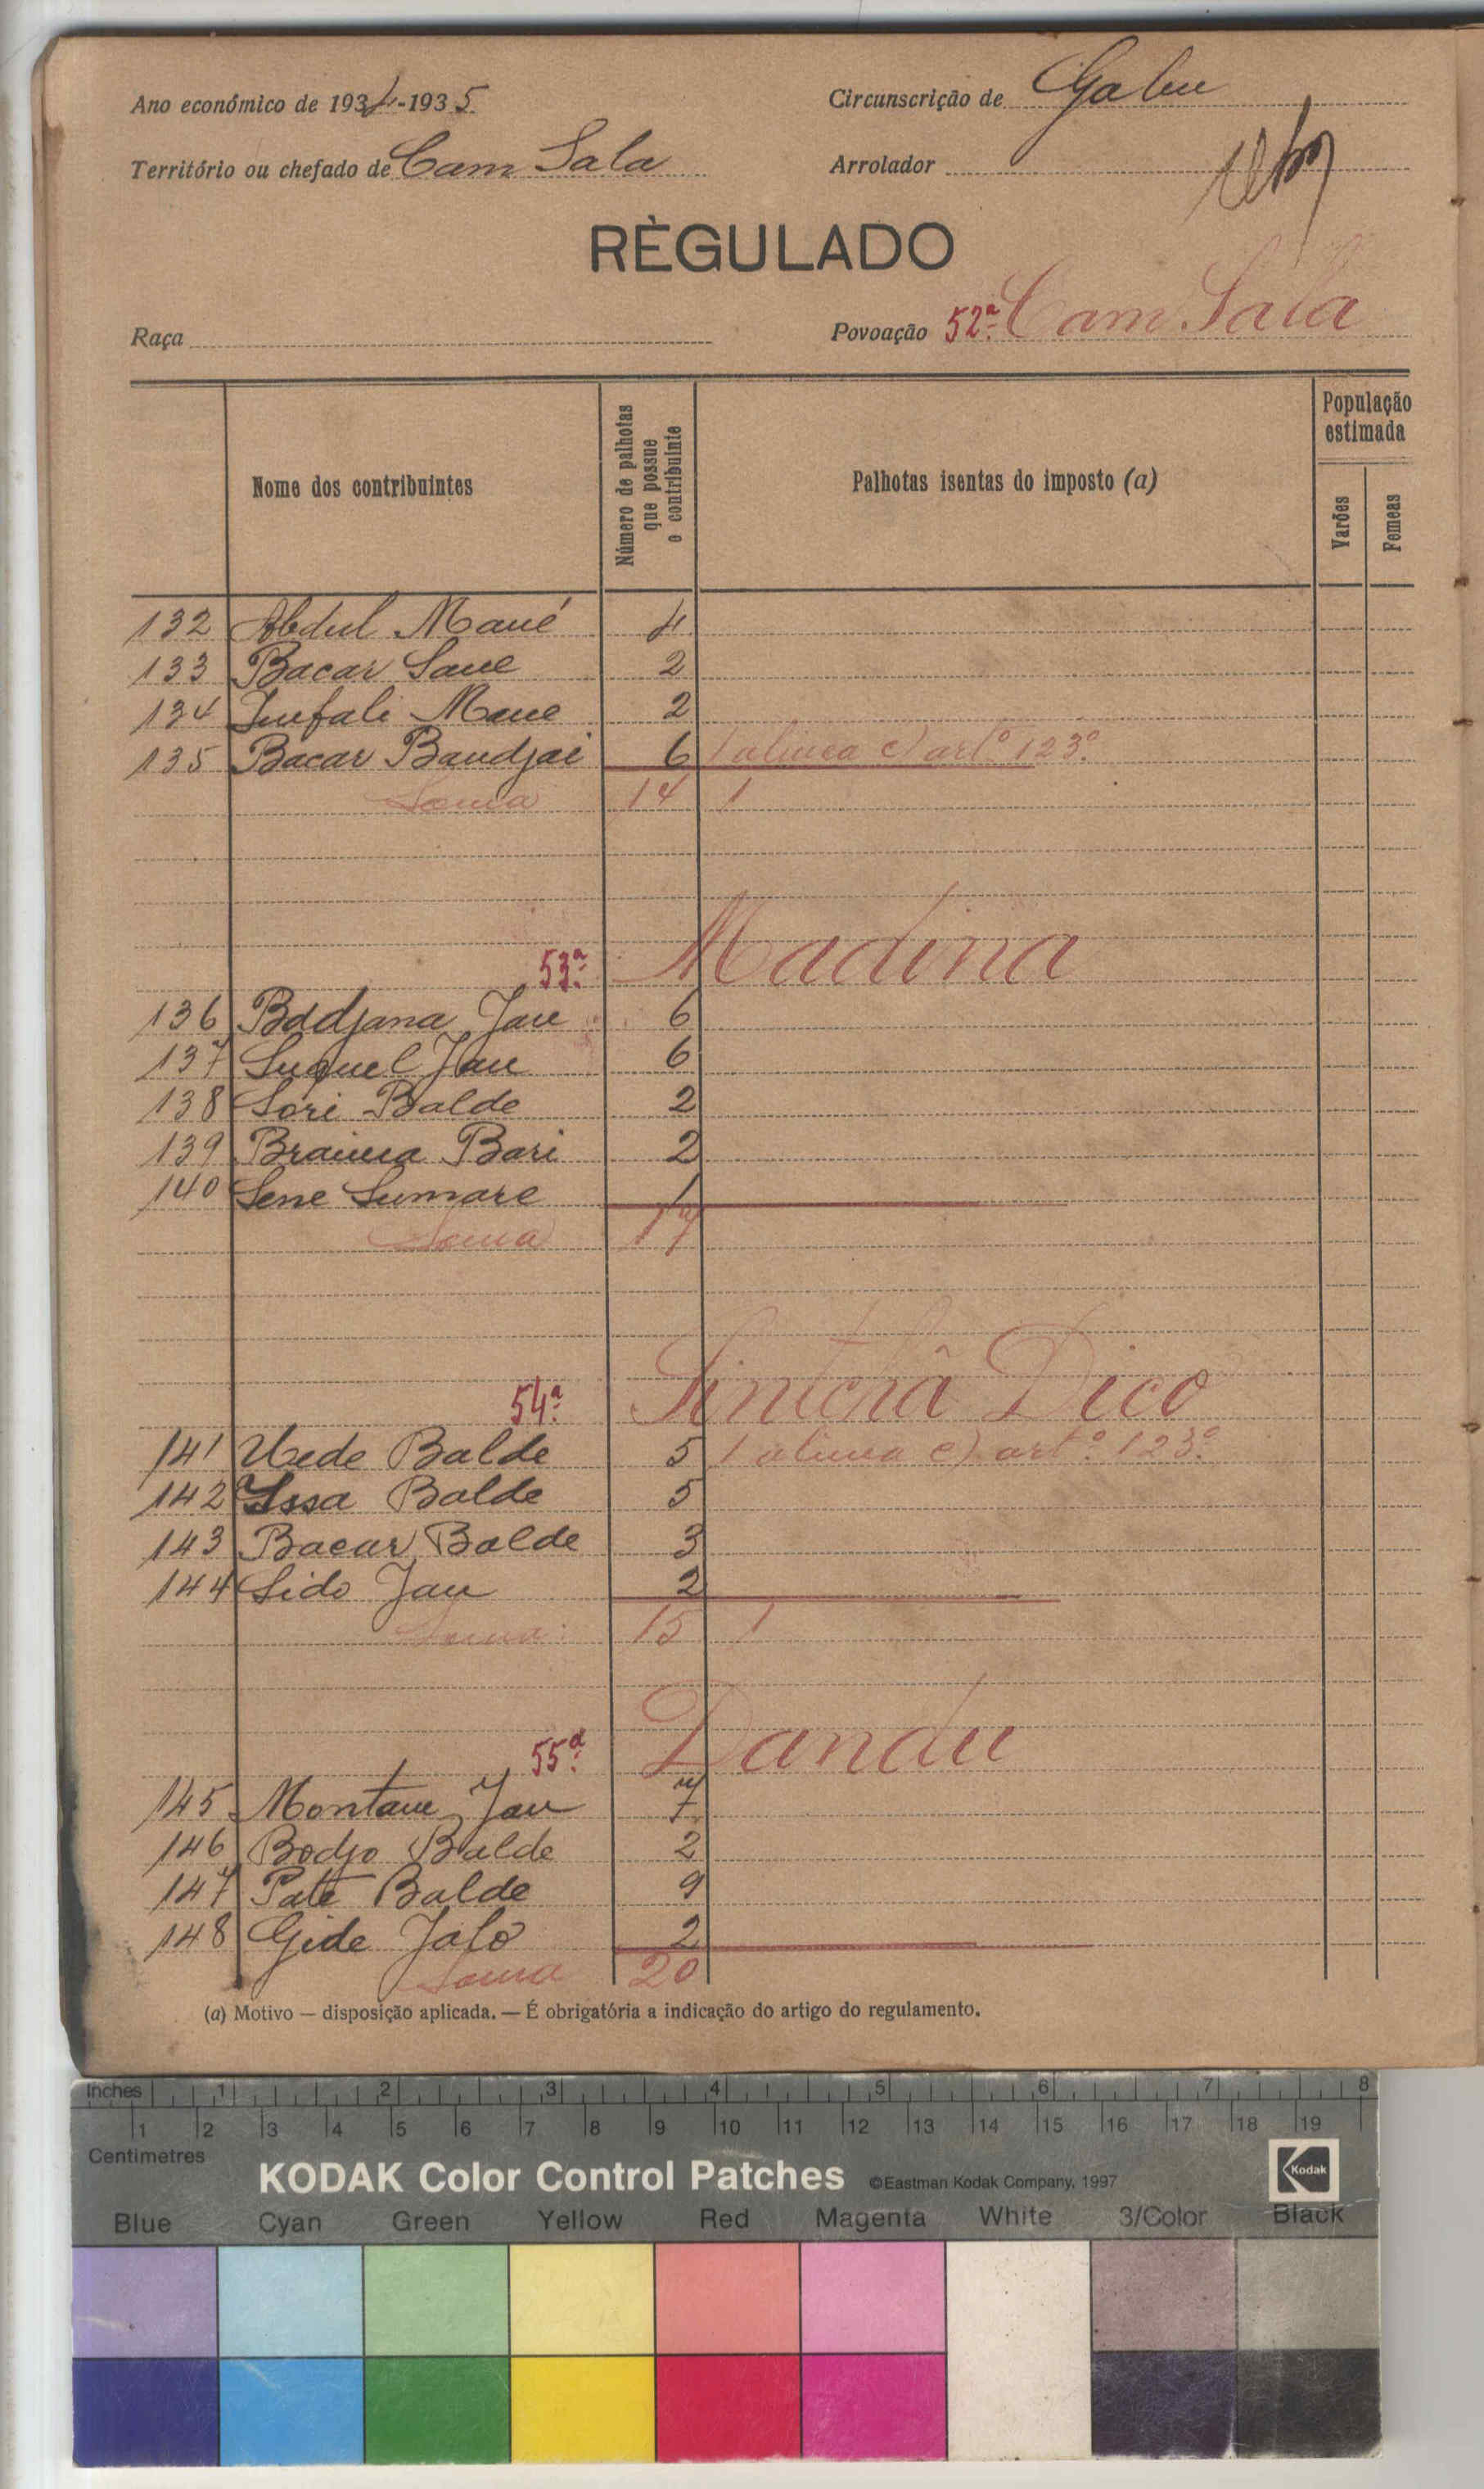 Ano económico de 1934-1935
Circunscrição de Gabu
Território ou chefado de Cam Sala
Arrolador
RÈGULADO
Raça
Povoação 52ª Cam Sala
Nome dos contribuintes
Número de palhotas que possue o contribuinte
Palhotas isentas do imposto (a)
População estimada
Varões
Femeas
132 Abdul Mané 4
133 Bacar Sane 2
134 Infali Mane 2
135 Bacar Bandjai 6 1 alinea c) artº 123º
Soma 14 1
53ª Madina
136 Bddjana Jau 6
137 Suquel Jau 6
138 Sori Balde 2
139 Braima Bari 2
140 Sene Sumare 1
Soma 17
54ª Sintchâ Dico
141 Uede Balde 5 1 alinea c) artº 123º
142 Issa Balde 5
143 Bacar Balde 3
144 Sido Jau 2
Soma 15 1
55ª Dandu
145 Montau Jau 7
146 Bodjo Balde 2
147 Paté Balde 9
148 Gide Jalo 2
Soma 20
(a) Motivo — disposição aplicada. — É obrigatória a indicação do artigo do regulamento.
Inches 1 2 3 4 5 6 7 8
1 2 3 4 5 6 7 8 9 10 11 12 13 14 15 16 17 18 19
Centimetres
KODAK Color Control Patches ©Eastman Kodak Company, 1997 Kodak
Blue Cyan Green Yellow Red Magenta White 3/Color Black